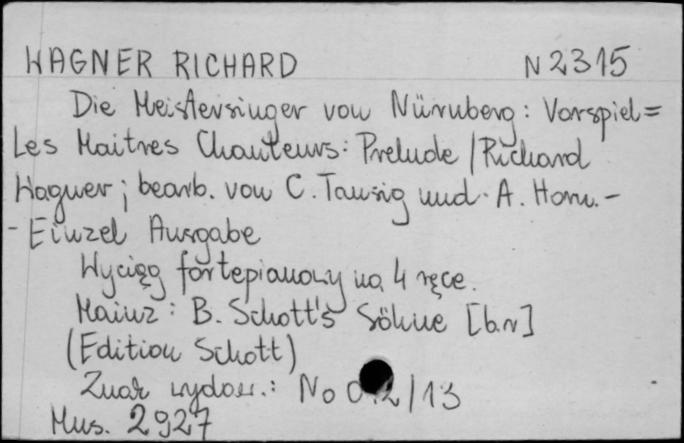 WAGNER RICHARD N 2315
Die Meistersinger von Nürnberg: Vorspiel=
Les Maitres Chanteurs: Prelude / Richard
Wagner; bearb. von C. Tausig und A. Horn. -
- Einzel Ausgabe
Wyciąg fortepianowy na 4 ręce.
Mainz: B. Schott's Söhne [b.r]
(Edition Schott)
Znak wydaw.: No 2/13
Mus. 2927